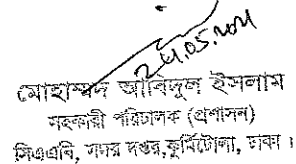 24.05.2021
মোহাম্মদ আবিদুল ইসলাম
সহকারী পরিচালক (প্রশাসন)
সিএএবি, সদর দপ্তর,কুর্মিটোলা, ঢাকা।